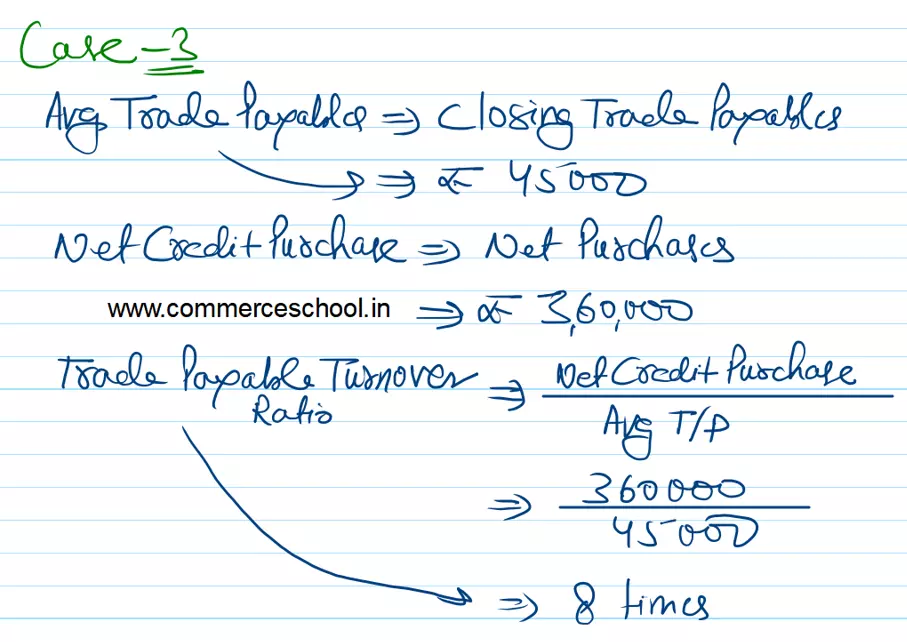 Case - 3
Avg Trade Payables ⇒ Closing Trade Payables
⇒ ₹ 45000
Net Credit Purchase ⇒ Net Purchases
www.commerceschool.in ⇒ ₹ 3,60,000
Trade Payable Turnover Ratio ⇒ Net Credit Purchase
Avg T/P
⇒ 360000
45000
⇒ 8 times